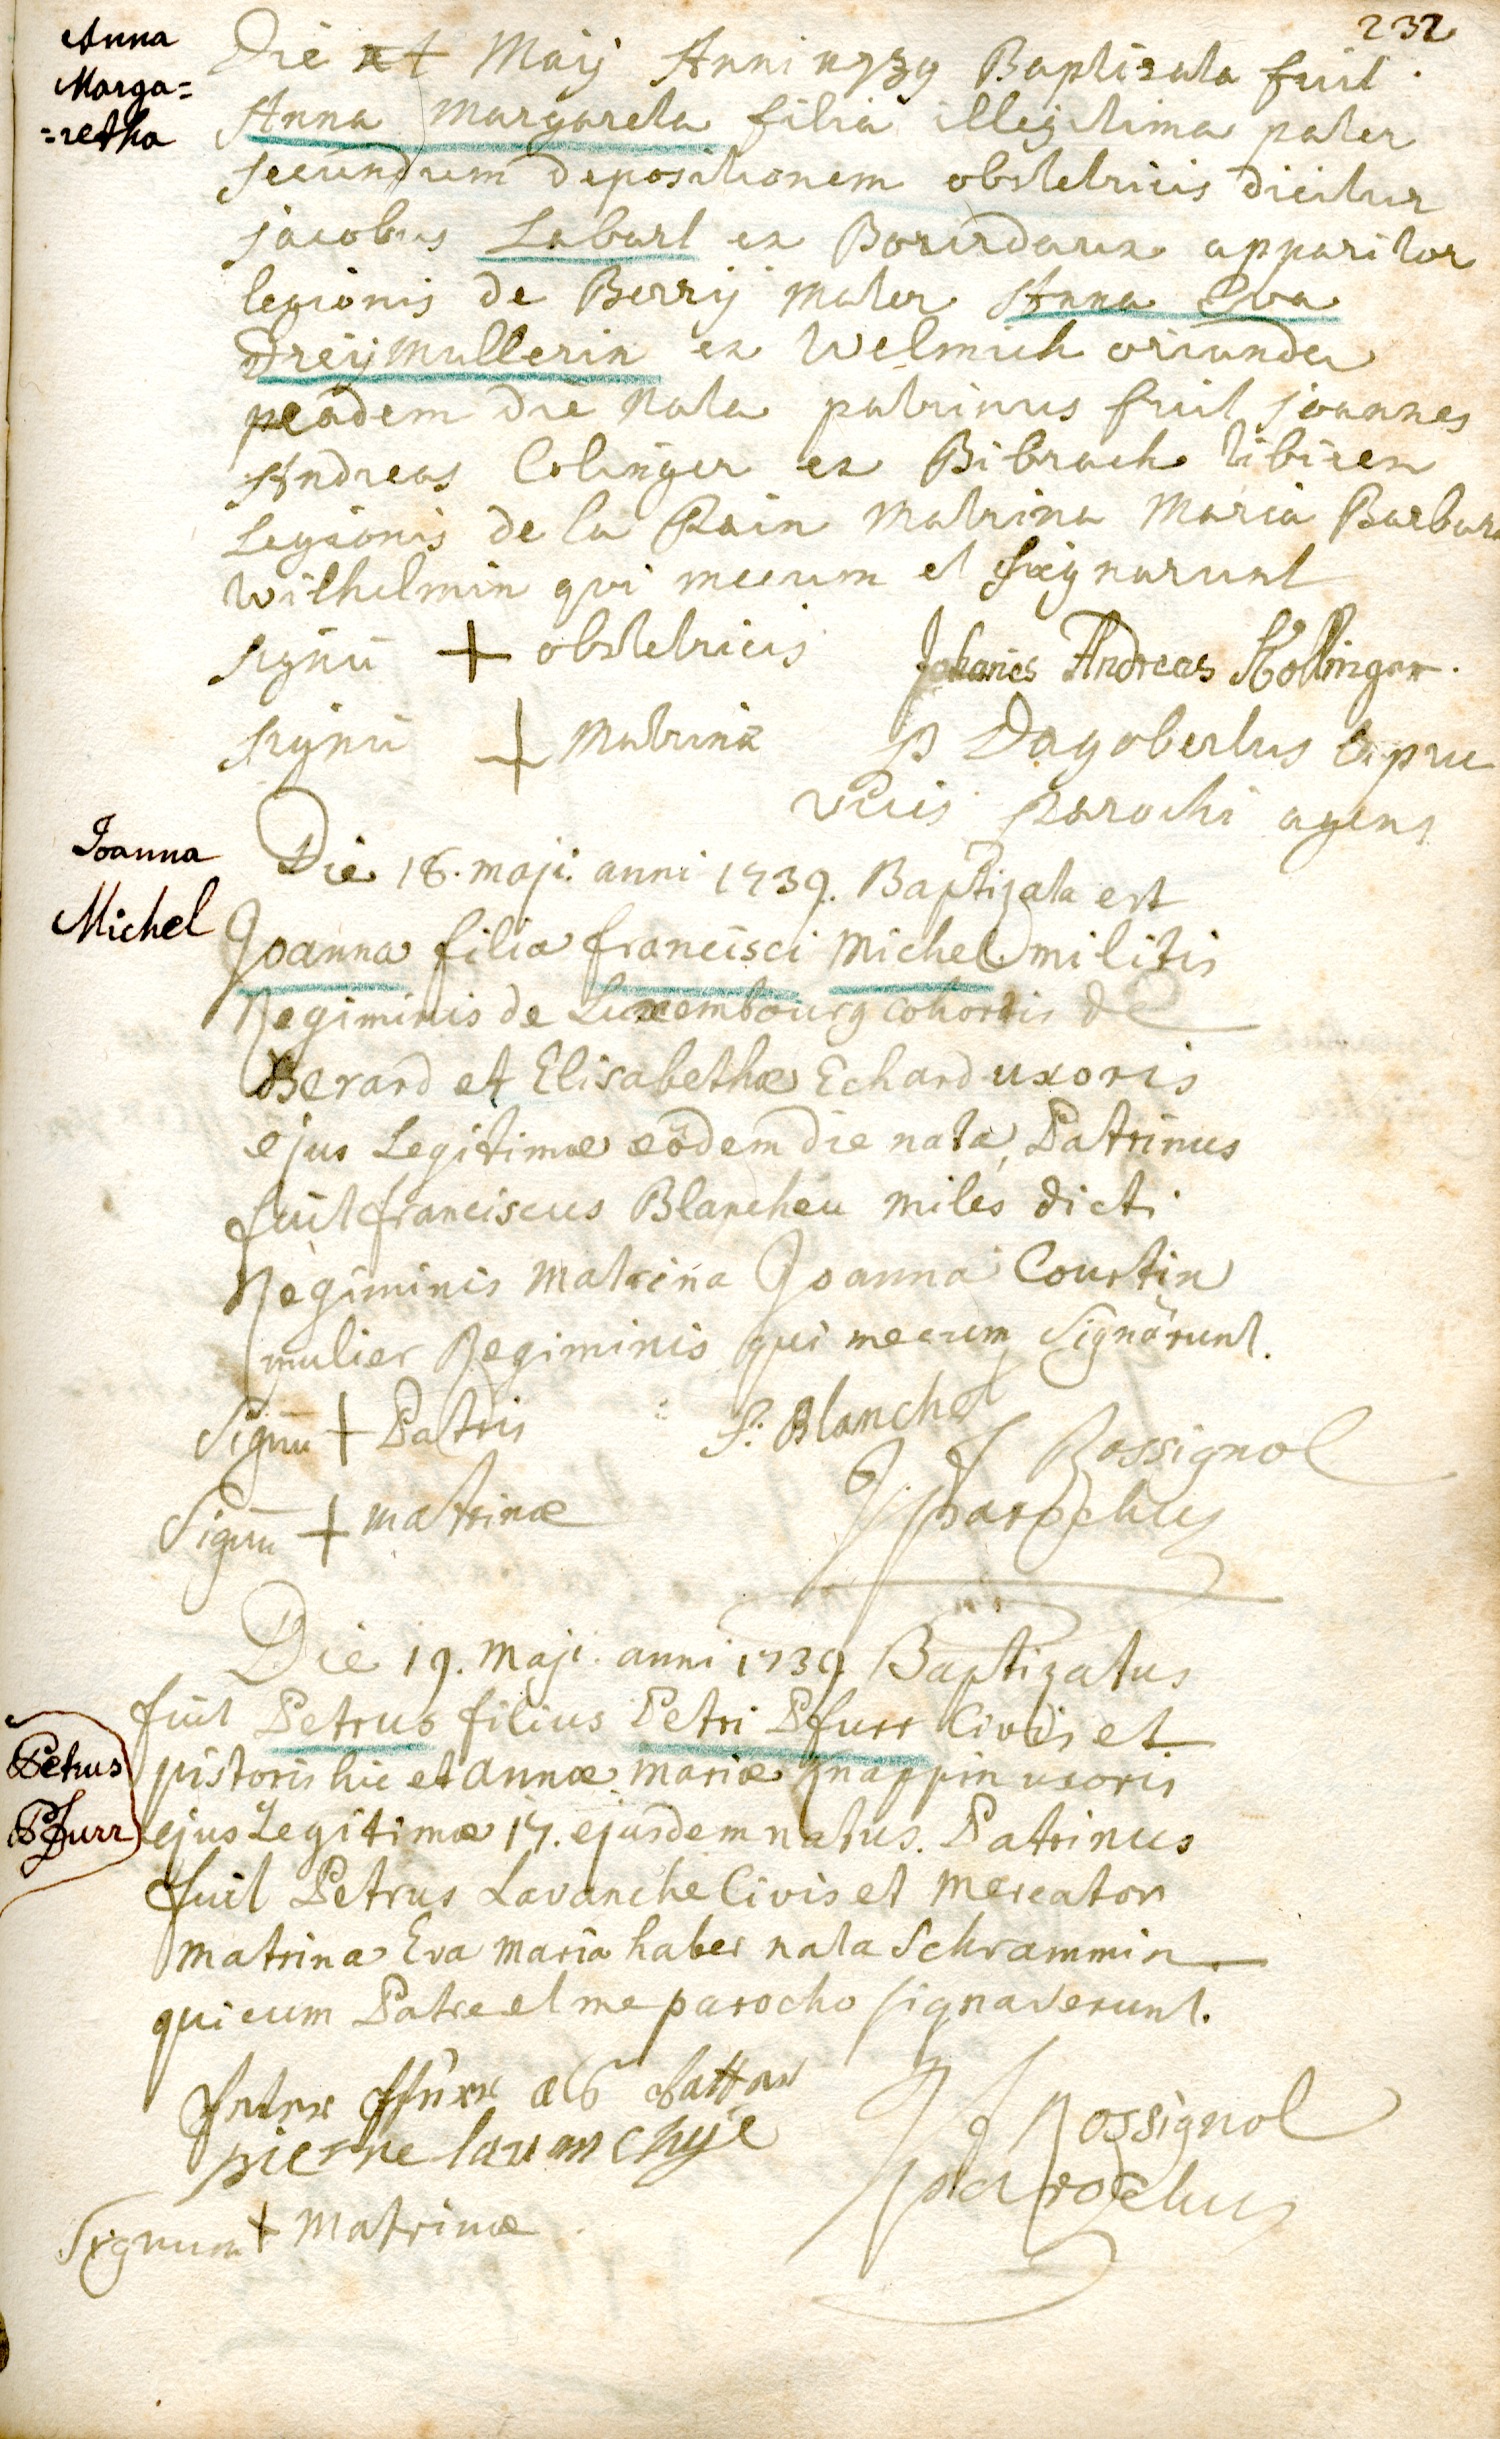 232
Anna
Marga=
=retha
Die Maij Anni 1739 Baptisata fuit
Anna Margareta filia illegitima pater
secundum depositionem obstetricis dicitur
jacobus Labart ex Bourdeaux apparitor
legionis de Berry mater Anna Eva
Dreymullerin ex Welmich oriunda
eâdem die Nata patrinus fuit joannes
Andreas Colinger ex Bibrach tibicen
Legionis de la Rain Matrina Maria Barbara
Wilhelmin qui mecum et signarunt
signū + obstetricis Johanes Andreas Kollinger.
signū + Matrinæ P Dagobertus
vices parochi agens
Joanna
Michel
Die 18. maji. anni 1739. Baptizata est
Joanna filia francisci Michel militis
Regiminis de Luxembourg cohortis de
Berard et Elisabethæ Echard uxoris
ejus Legitimæ eôdem die nata, Patrinus
fuit franciscus Blancheu miles dicti
Regiminis Matrina Joanna Courtin
mulier Regiminis qui mecum Signârunt.
Signū + Patris F. Blanchet
J Rossignol
Signū + matrinæ parochus
Die 19. Maji. anni 1739 Baptizatus
fuit Petrus filius Petri Pfurr Civis et
Petrus
Pfurr
pistoris hic et annæ mariæ Knappin uxoris
ejus Legitimæ 17. ejusdem natus. Patrinus
fuit Petrus Lavanche Civis et Mercator
Matrina Eva maria haber nata Schrammin
qui cum Patre et me parocho signaverunt.
Peter Pfurr als Vatter
pierre lavanchye
J Rossignol
parochus
Signum + Matrinæ